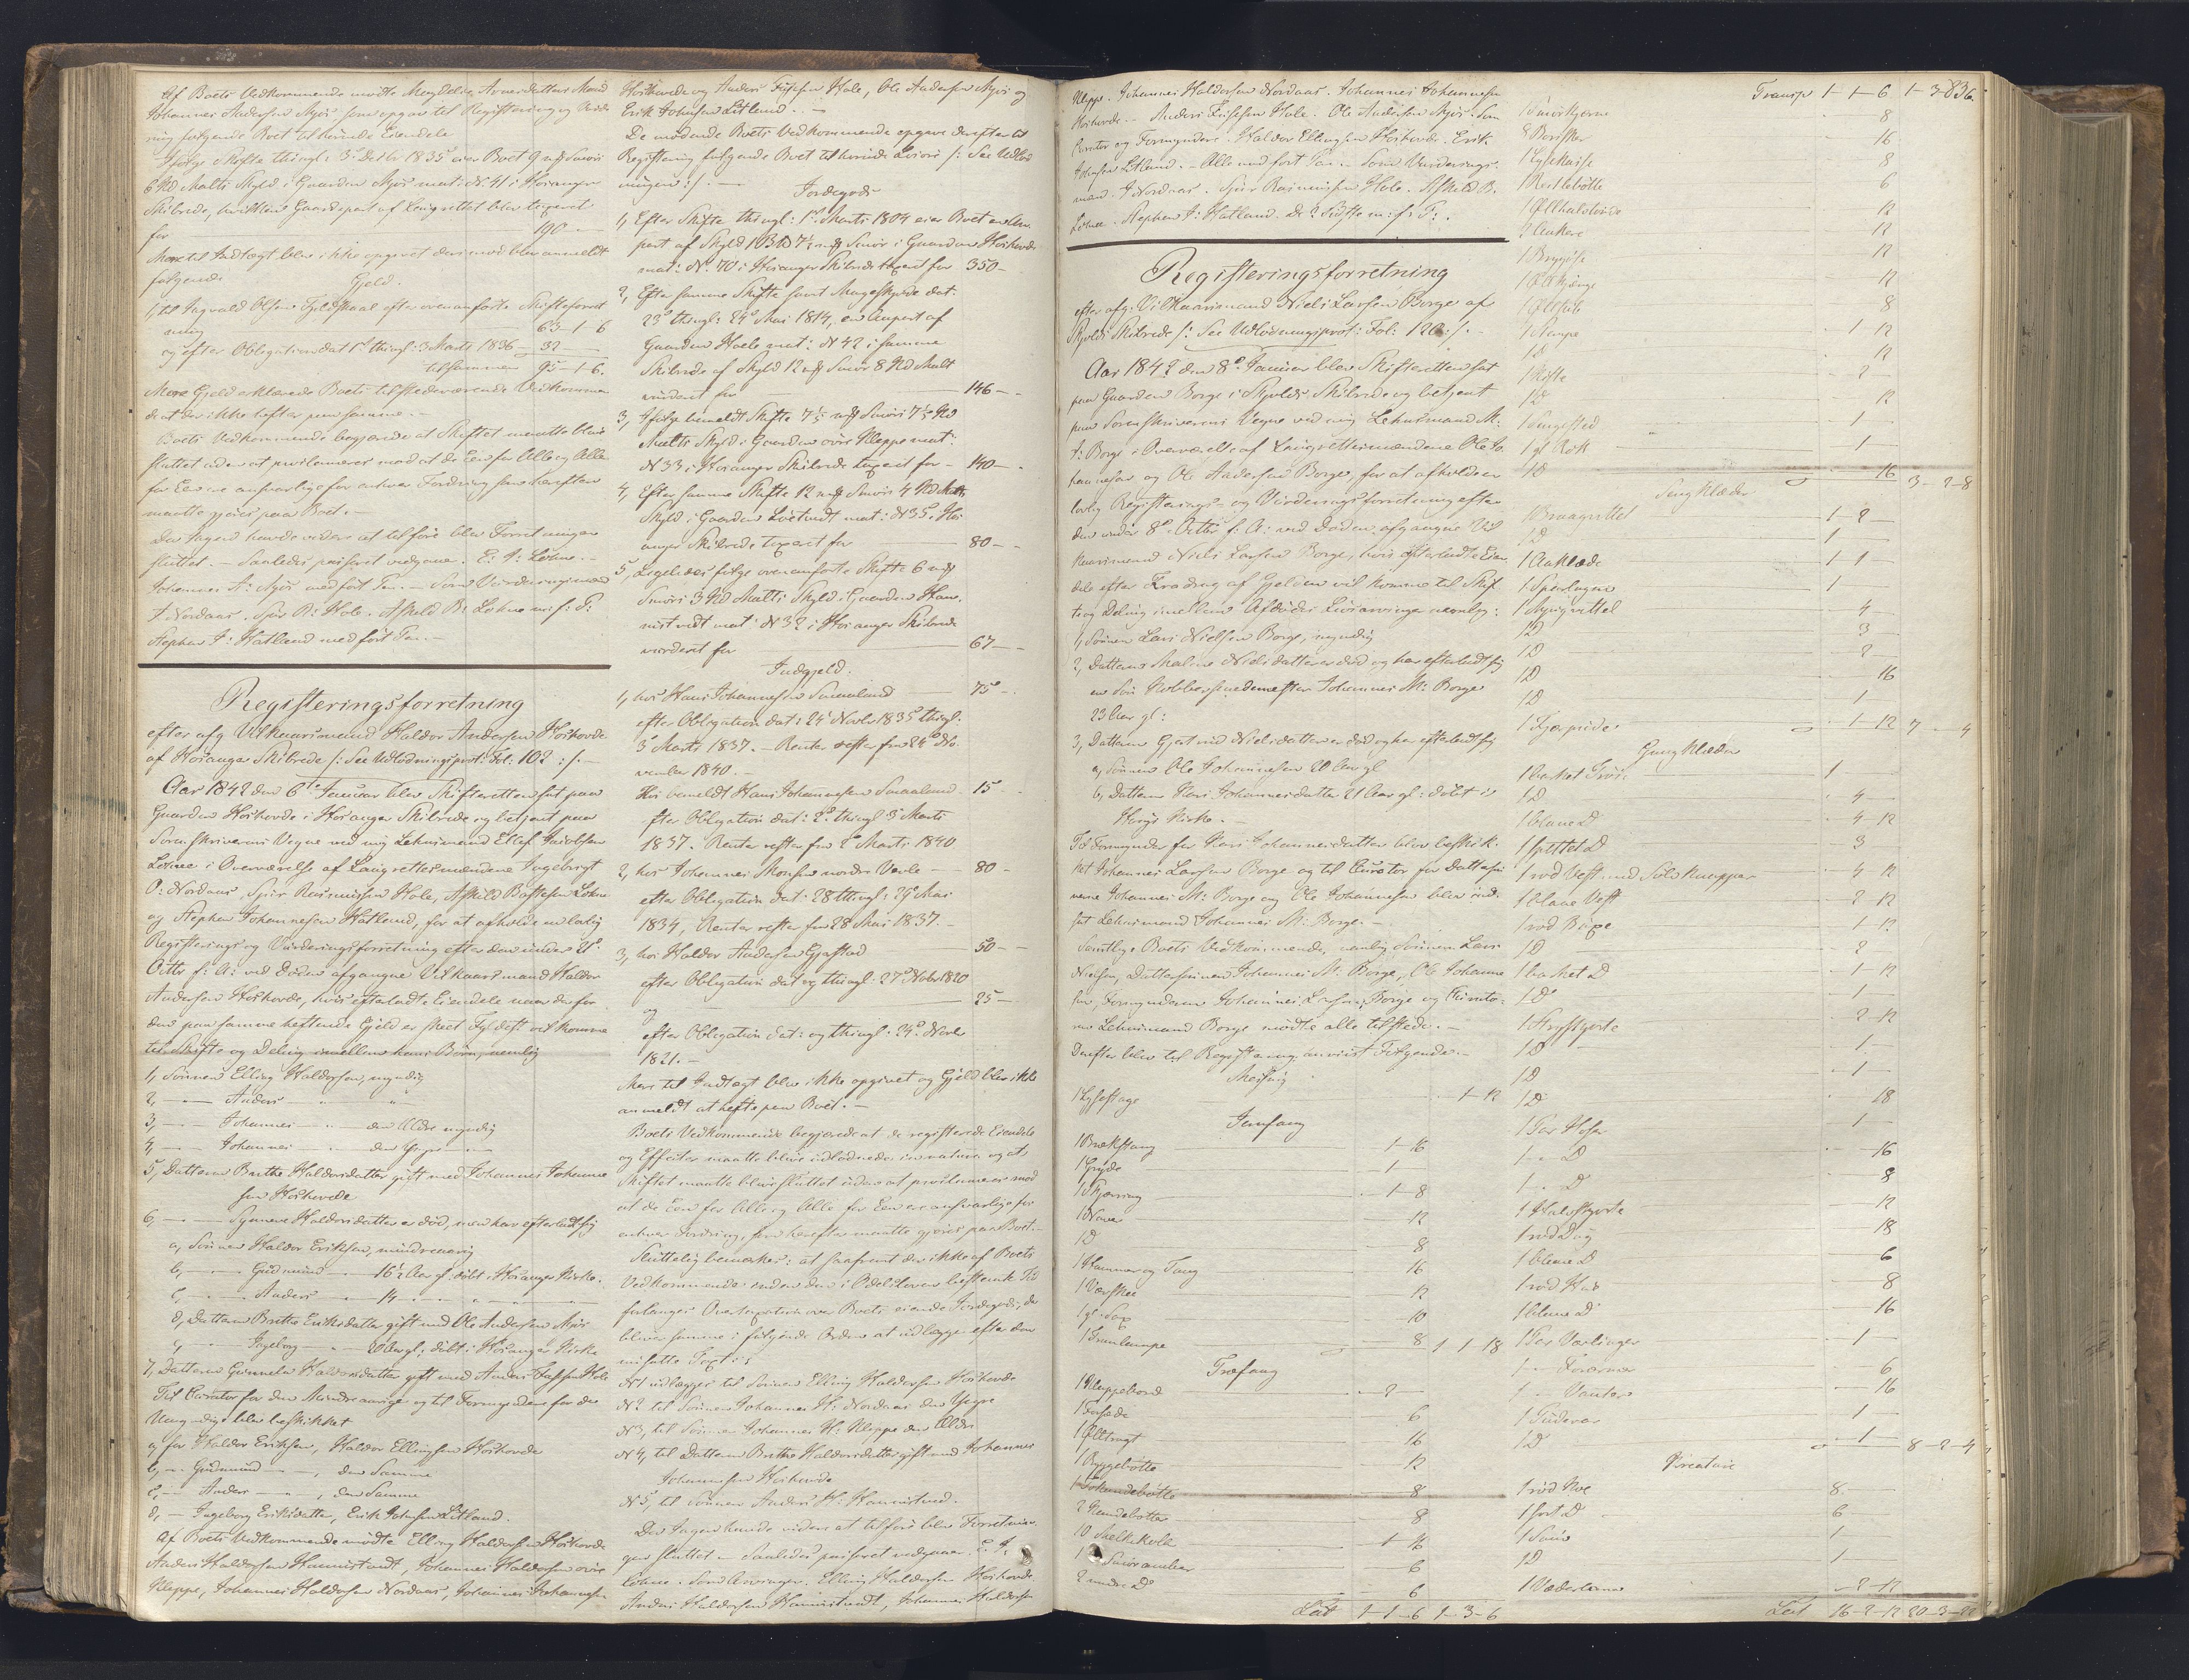 Af Boets Vedkommende mødte Magdela Arnesdatters Mand
Johannes Andersen Mjøs, som opgav til Registrering og Vurde
ring følgende Boet tilhørende Eiendele
Ifølge Skifte thingl: 3 Decbr 1835 eier Boet 9 mkr Smørs
6 Kd Malts Skyld i Gaarden Mjøs mat: N. 41 i Hosanger
Skibrede, hvilken Gaardepart af Laugrettet blev taxeret
for 190 —
Mere til Indtægt blev ikke opgivet derimod blev anmeldt
følgende Gjeld.
1, til Ingvald Olsen Fjeldskaal efter ovenanførte Skifteforret
ning 63-1-6
og efter Obligation dat 1 thingl: 3 Marts 1836 — 32 —
tilsammen 95-1-6.
Mere Gjeld erklærede Boets tilstedeværende Vedkommen
de at der ikke hefter paa samme. —
Boets Vedkommende begjærede at Skiftet maatte blive
sluttet uden at proclameres mod at de Een for Alle og Alle
for Een ere ansvarlige for enhver Fordring som herefter
maatte gjøres paa Boet. —
Da Ingen havde videre at tilføre blev Forretningen
sluttet. — Saaledes passeret vedgaaer. E. J: Lohne. —
Johannes A: Mjøs med ført Pen. — Som Vurderingsmænd
J. Nordaas. Sjur R: Hole. Askild B: Lohne m: f: P:
Stephen J: Hatland med ført Pen. —
Registeringsforretning
efter afg Vilkaarsmand Haldor Andersen Hoshovde
af Hosanger Skibrede /: See Udlodningsprot: Fol: 102 :/. —
Aar 1842 den 6te Januar blev Skifteretten sat paa
Gaarden Hoshovde i Hosanger Skibrede og betjent paa
Sorenskriverens Vegne ved mig Lehnsmand Ellef Jacobsen
Lohne i Overværelse af Laugrettesmændene Ingebrigt
O: Nordaas, Sjur Rasmussen Hole, Askild Lohne
og Stephen Johannesen Hatland, for at afholde en lovlig
Registerings og Vurderingsforretning efter den under 21
Octbr f: A: ved Døden afgangne Vilkaarsmand Haldor
Andersen Hoshovde, hvis efterladte Eiendele naar den for
den paa samme heftende Gjeld er skeet Fyldest vil komme
til Skifte og Deling imellem hans Børn, nemlig
1, Sønnen Elling Haldorsen, myndig
2, — Anders " "
3, — Johannes — den Ældre myndig
4, — Johannes " den Yngre —
5, Datteren Brithe Haldorsdatter gift med Johannes Johanne
sen Hoshovde
6, — Synneve Haldorsdatter er død, men har efterladt sig
a, Sønnen Haldor Eriksen, mindreaarig
b, — Gudmund — 16½ Aar gl: døbt i Hosanger Kirke.
c, — Anders — 14 — " — " —
d, Datteren Brithe Eriksdatter gift med Ole Andersen Mjøs
e, — Ingeborg — 20 Aar gl: døbt i Hosanger Kirke
7, Datteren Gunnela Haldorsdatter gift med Anders Hole
Til Curator for den Mindreaarige og til Formyndere for de
Umyndige blev beskikket
a, for Haldor Eriksen, Haldor Ellingsen Hoshovde
b, — Gudmund — , den Samme
c, — Anders — , den Samme
d, — Ingeborg Eriksdatter, Erik Johnsen Litland.
Af Boets Vedkommende mødte Elling Haldorsen Hoshovde
Anders Haldorsen Hannistvedt, Johannes Haldorsen øvre
Kleppe, Johannes Haldorsen Nordaas, Johannes Johannesen
Hoshovde og Anders Hole, Ole Andersen Mjøs og
Erik Johnsen Litland. —
De mødende Boets Vedkommende opgave derefter til
Registering følgende Boet tilhørende
ningen :/. —
Jordegods
1, Efter Skifte thingl: 1 Marts 1804 eier Boet en An
part af Skyld 1 7½ mkr Smør i Gaarden Hoshovde
mat: N. 40 i Hosanger Skibrede taxeret for 350 —
2, Efter samme Skifte samt Mageskjøde dat.
23 thingl: 24 Mai 1814, en Anpart af
Gaarden Hole mat: N 42 i samme
Skibrede af Skyld 12 mkr Smør 8 Kd Malt
vurderet for 146 —
3, Ifølge bemeldt Skifte 7½ mkr Smørs 7½ Kd
Malts Skyld i Gaarden øvre Kleppe mat:
N 33 i Hosanger Skibrede taxeret for — 140 —
4, Efter samme Skifte 12 mkr Smørs 4 Kd Malts
Skyld i Gaarden mat: N 35 i Hos
anger Skibrede taxeret for 80 —
5, Ligeledes ifølge ovenanførte Skifte 6 mkr
Smørs 3 Kd Malts Skyld i Gaarden Han.
nistvedt mat: N 32 i Hosanger Skibrede
vurderet for 67 —
Indgjeld.
1, hos Hans Johannesen 75 —
efter Obligation dat: 24 Novbr 1835 thingl.
3 Marts 1837. — Renter rester fra 24 No
vember 1840. —
Hos bemeldt Hans Johannesen 15 —
efter Obligation dat: 2 thingl 3 Marts
1837. Renter rester fra 2 Marts 1840
2, hos Johannes Monsen nordre — 80 —
efter Obligation dat: 28 thingl: 29 Mai
1834, Renter rester fra 28 Mai 1837. —
3, hos Haldor Andersen 50 —
efter Obligation dat og thingl: 27 Novbr 1820
og 25 —
efter Obligation dat: og thingl. 24 Novbr
1821. —
Mere til Indtægt blev ikke opgivet og Gjeld blev ikke
anmeldt at hefte paa Boet. —
Boets Vedkommende begjærede at de registerede Eiendele
og Effecter maatte blive udlodnede in natura og at
Skiftet maatte blive sluttet uden at proclameres mod
at de Een for Alle og Alle for Een ere ansvarlige for
enhver Fordring, som herefter maatte gjøres paa Boet. —
Sluttelig bemærkes: at saafremt der ikke af Boets
Vedkommende inden den i Odelsloven bestemte Tid
forlanges Overtaxation over Boets eiende Jordegods, da
bliver samme i følgende Orden at udlægge efter den
ansatte Taxt:
N 1 udlægges til Sønnen Elling Haldorsen Hoshovde
N 2 til Sønnen Johannes H: Nordaas den Yngre
N 3, til Sønnen Johannes H: Kleppe den Ældre
N 4, til Datteren Brithe Haldorsdatter gift med Johannes
Johannesen Hoshovde
N 5, til Sønnen Anders H: Hannistved.
Da Ingen havde videre at tilføre blev Forretnin
gen sluttet — Saaledes passeret vedgaaer. E. J.
Lohne. Som Arvinger. Elling Haldorsen Hoshovde
Anders Haldorsen Hannistvedt, Johannes Haldorsen
836.
Kleppe. Johannes Haldorsen Nordaas. Johannes Johannesen
Hoshovde. — Anders Hole. Ole Andersen Mjøs. Som
Curator og Formyndere. Haldor Ellingsen Hoshovde. Erik
Johnsen Litland. — Alle med ført Pen. — Som Vurderings-
mænd. J Nordaas. Sjur Rasmussen Hole. Askild B.
Lohne. Stephen J: Hatland. De 2 Sidste m: f: P: .
Registeringsforretning
efter afg: Vilkaarsmand Niels Larsen Borge af
Skjolds Skibrede /: See Udlodningsprot: Fol: 120 :/. —
Aar 1842 den 8 Januar blev Skifteretten sat
paa Gaarden Borge i Skjolds Skibrede og betjent
paa Sorenskriverens Vegne ved mig Lehnsmand M:
J: Borge i Overværelse af Laugrettesmændene Ole Jo
hannesen og Ole Andersen Borge, for at afholde en
lovlig Registerings- og Vurderingsforretning efter
den under 8 Octbr f: A: ved Døden afgangne Vil
kaarsmand Niels Larsen Borge, hvis efterladte Eien
dele efter Fradrag af Gjelden vil komme til Skif
te og Deling imellem Afdødes Livsarvinger nemlig:
1, Sønnen Lars Nielsen Borge, myndig
2, Datteren Malene Nielsdatter er død og har efterladt sig
en Søn Kobbersmedmester Johannes M: Borge
23 Aar gl:
3, Datteren Gjertrud Nielsdatter er død og har efterladt sig
a, Sønnen Ole Johannesen 20 Aar gl
b, Datteren Kari Johannesdatter 21 Aar gl: døbt i
Kirke. —
Til Formynder for Kari Johannesdatter blev beskik.
ket Johannes Larsen Borge og til Curator for Dattersøn
nerne Johannes M: Borge og Ole Johannesen blev ind.
sat Lehnsmand Johannes M: Borge. —
Samtlige Boets Vedkommende, nemlig Sønnen Lars
Nielsen, Dattersønnen Johannes M: Borge, Ole Johanne
sen, Formynderen Johannes Larsen Borge og Curato-
ren Lehnsmand Borge mødte alle tilstede. —
Derefter blev til Registering anviist Følgende. —
Messing
1 Lysestage 1-12
Jernfang
1 Brækstang 1-16
1 Gryde 1 —
1 1-8
1 Naver 12
1 D 8
1 Hammer og Tang 16
1 12
1 gl: Sax 10
1 Tranlampe 8 1-1-18
Træfang
1 Kleppebord 2 —
1 6
1 Øltragt 16
1 Byggebøtte 12
1 8
2 Handebøtter 8
10 Melkekoller 1-16
1 Smørambar 6
2 mindre D 6
Lat 1-1-6 1-3-6
Transp 1-1-6 1-3-6
1 Smørkjerne 8
8 16
1 Lysekasse 8
1 6
1 Ølhalvtønde 12
2 Ankere 12
1 12
1 12
1 8
1 Stampe 1-12
1 D 12
1 Kiste 2 —
1 D 12
1 Sengested 1 —
1 gl Rok 1 —
1 D 16 3-2-8
Sengklæder
1 1-2
1 D 1 —
1 Aaklæde 1-1
1 Sperlagen 1 —
1 4 —
1 D 3 —
1 D 2 —
1 D 16
1 D 1 —
1 Fjærpude 1-12 7 — 4
Gangklæder
1 Trøie 1 —
1 D 4 —
1 blaae D 4-12
1 D 3
1 rød Vest med Sølv Knapper 4-12
1 blaae Vest 2-12
1 rød Buxe 1-12
1 D 2
1 D 1-12
1 D 1 —
1 2-12
1 D 1 —
1 D 1 —
1 D 18
1 Par Hoser 1 —
1 — D 16
1 — D 8
1 Halsskjorte 12
1 rød Dug 18
1 blaae D 6
1 rød Hue 8
1 blaae D 16
1 Par Vætlinger 1 —
1 — 6
1 — Vanter 16
1 Pudevar 1 —
1 D 1 — 8-2-4
Creature
1 rød Koe 8 —
1 sort D 6 —
1 Souv 1 —
1 D 1 —
1 Væderlam 2-12
Lat 16-2-12 20-3-22